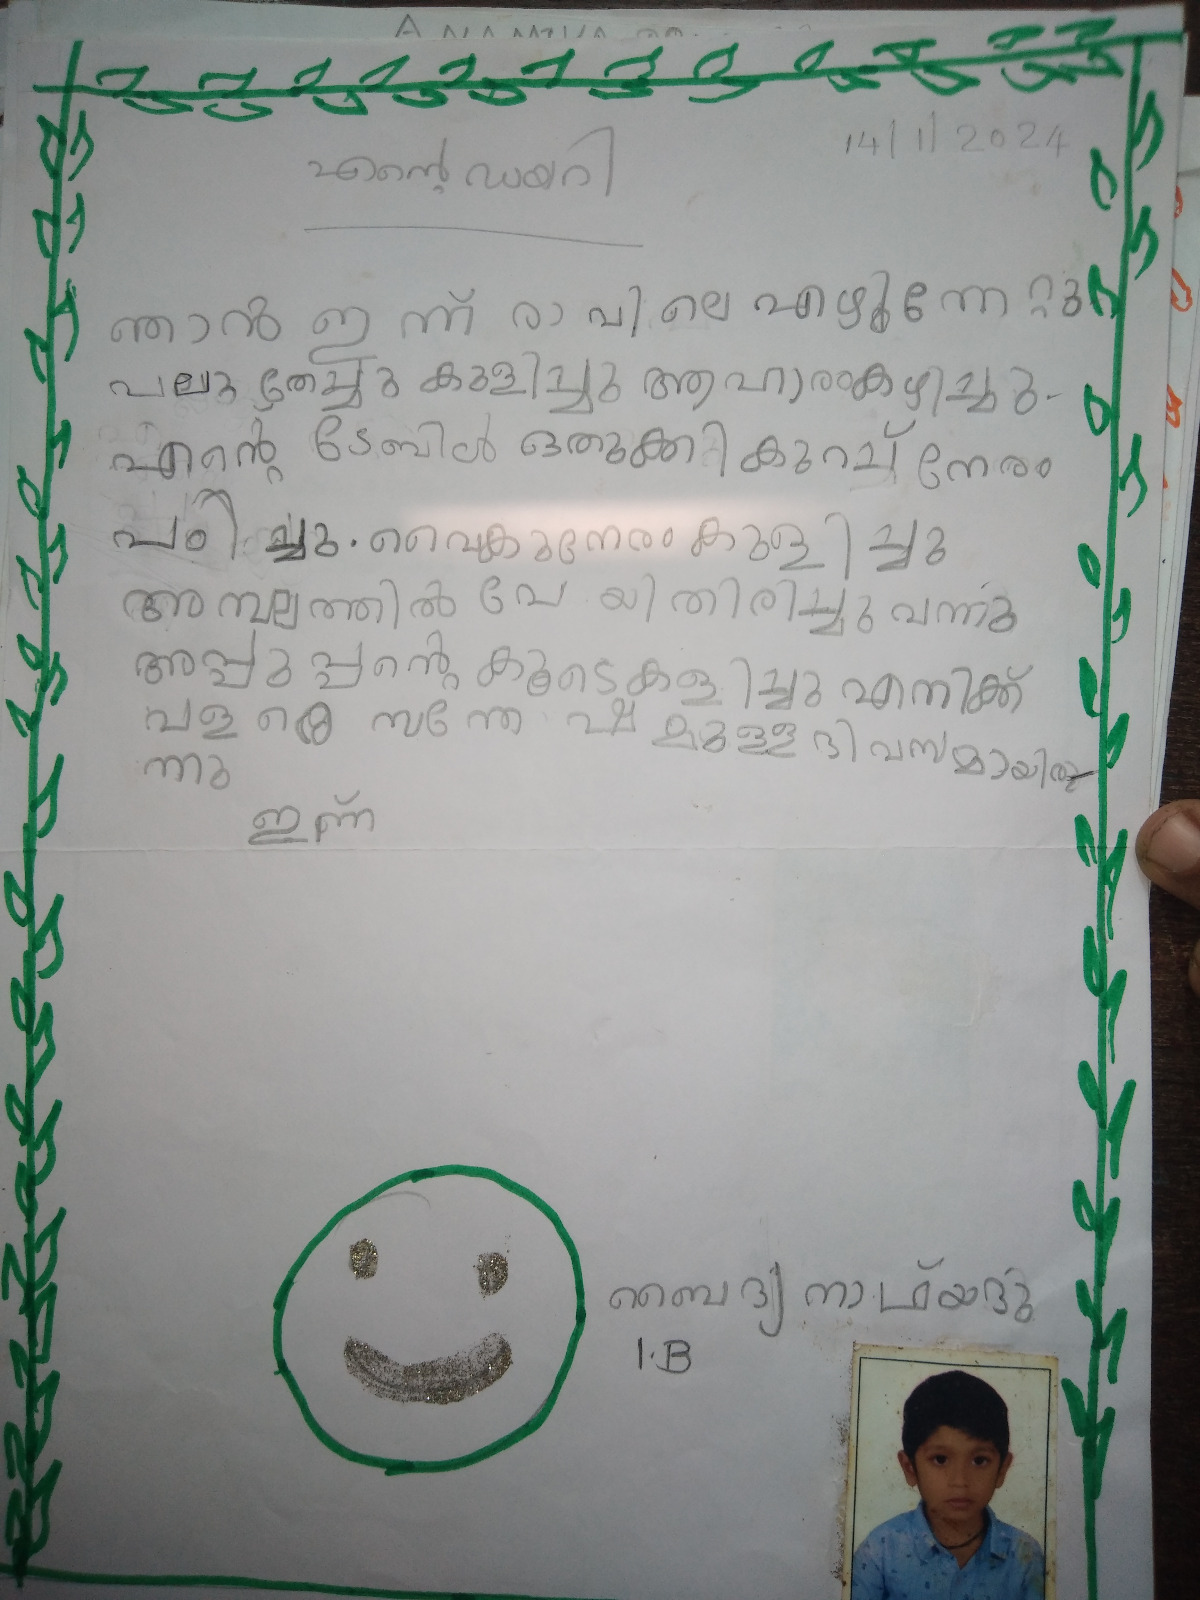 എന്റെ ഡയറി
14/1/2024
ഞാൻ ഇന്ന് രാവിലെ എഴുന്നേറ്റു
പലു തേച്ചു കുളിച്ചു ആഹാരംകഴിച്ചു.
എന്റെ ടേബിൾ ഒതുക്കി കുറച്ച് നേരം
പഠിച്ചു. വൈകുനേരം കുളിച്ചു
അമ്പലത്തിൽ പോയി തിരിച്ചു വന്നു
അപ്പുപ്പന്റെ കൂടെകളിച്ചു എനിക്ക്
വളരെ സന്തോഷമുള്ള ദിവസമായിരു
ന്നു
ഇന്ന്
നാഥ്യദു
1.B